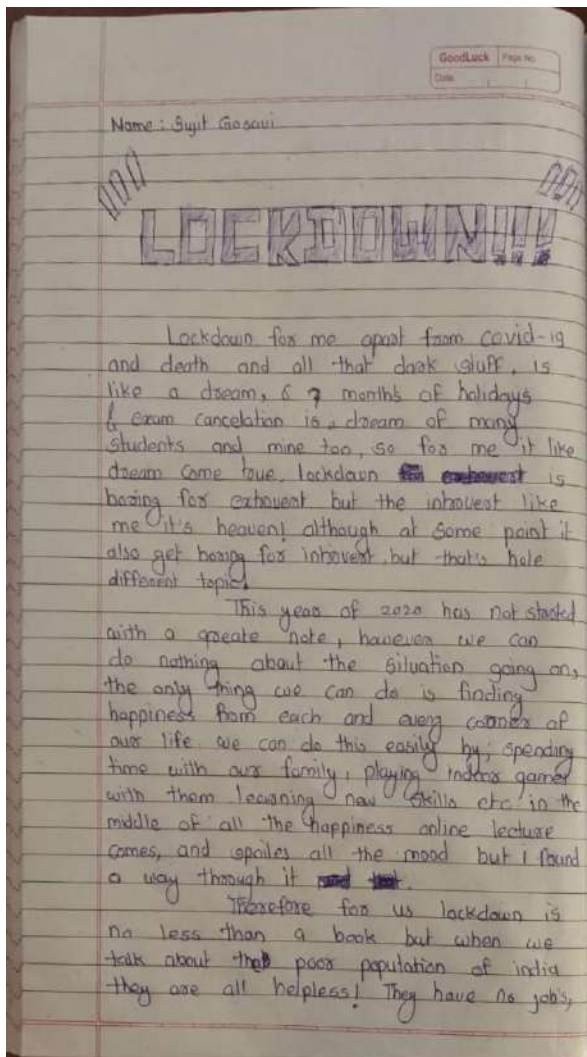 GoodLuck Page No.
Date
Name : Sujit Gosavi
LOCKDOWN!!!
Lockdown for me apart from covid-19
and death and all that dark stuff, is
like a dream, 6 7 months of holidays
& exam cancelation is a dream of many
students and mine too, so for me it like
dream come true. lockdown is
boring for extrovert but the introvert like
me it's heaven! although at some point it
also get boring for introvert, but that's hole
different topic.
This year of 2020 has not started
with a greate note, however we can
do nothing about the situation going on,
the only thing we can do is finding
happiness from each and every corner of
our life. we can do this easily by; spending
time with our family, playing indoor games
with them learning new skills etc in the
middle of all the happiness online lecture
comes, and spoiles all the mood but i found
a way through it
Therefore for us lockdown is
no less than a book but when we
talk about the poor population of india
they are all helpless! They have no job's,